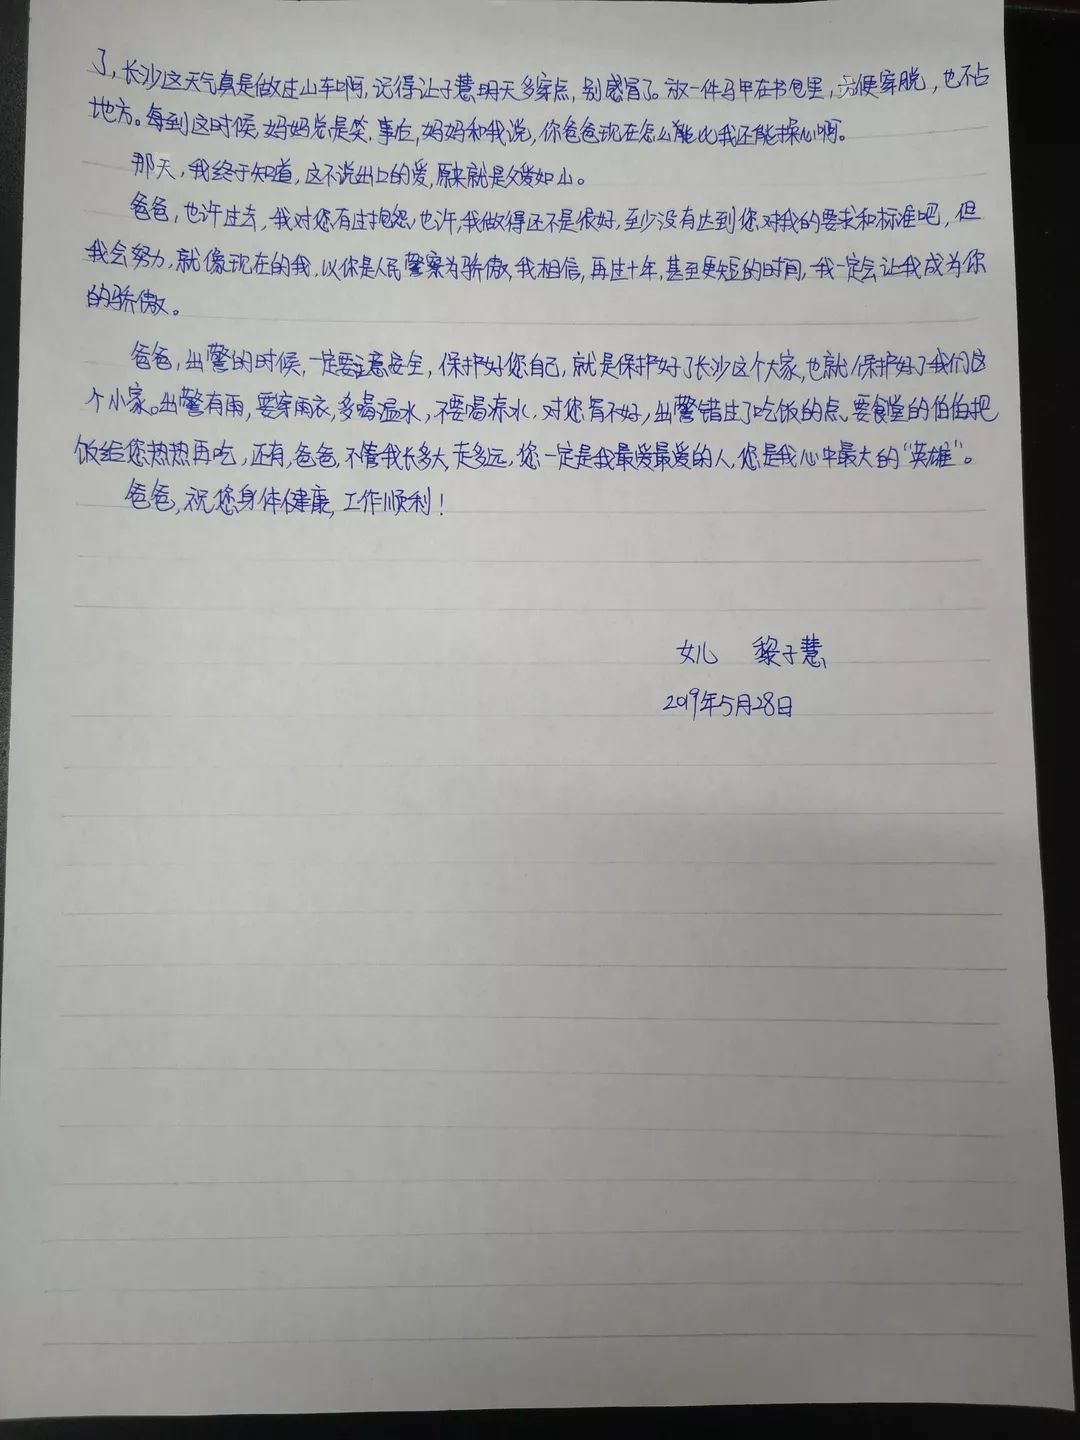 了,长沙这天气真是做过山车啊,记得让子慧明天多穿点,别感冒了。放一件马甲在书包里,方便穿脱,也不占
地方。每到这时候,妈妈总是笑.事后,妈妈和我说,你爸爸现在怎么能比我还能操心啊。
那天,我终于知道,这不说出口的爱,原来就是父爱如山。
爸爸,也许过去,我对您有过抱怨,也许,我做得还不是很好,至少没有达到您对我的要求和标准吧,但
我会努力,就像现在的我,以你是人民警察为骄傲,我相信,再过十年,甚至更短的时间,我一定会让我成为你
的骄傲。
爸爸,出警的时候,一定要注意安全,保护好您自己,就是保护好了长沙这个大家,也就保护好了我们这
个小家。出警有雨,要穿雨衣,多喝温水,不要喝凉水,对您胃不好,出警错过了吃饭的点、要食堂的伯伯把
饭给您热热再吃,还有,爸爸,不管我长多大,走多远,您一定是我最爱最爱的人,您是我心中最大的“英雄”。
爸爸,祝您身体健康,工作顺利!
女儿 黎子慧
2019年5月28日